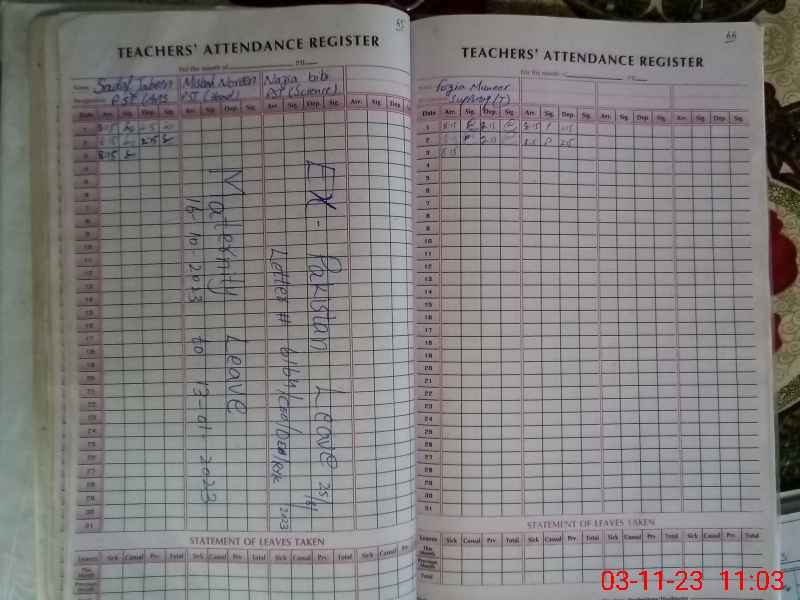 65
TEACHERS' ATTENDANCE REGISTER
For the month of 20
Name Sadaf Jabeen Misbah Noreen Nazia bibi
PST (Arts) PST (Head) PST (Science)
Date Arr. Sig. Dep. Sig. Arr. Sig. Dep. Sig. Arr. Sig. Dep. Sig. Arr. Sig. Dep.
1 8:15
2 8:15 2:15
3 8:15
4
5
6
7
8
9
10
11
12
13
14
15
16
17
18
19
20
21
22
23
24
25
26
27
28
29
30
31
Maternity Leave
16-10-2023 to 13-01-2023
EX-Pakistan Leave
Letter #
2023
STATEMENT OF LEAVES TAKEN
Leaves Sick Casual Prv. Total Sick Casual Prv. Total Sick Casual Prv. Total Sick Casual Prv.
This Month
Previous Month
66
TEACHERS' ATTENDANCE REGISTER
For the month of 20
Fozia Muneer
Date Arr. Sig. Dep. Sig. Arr. Sig. Dep. Sig. Arr. Sig. Dep. Sig. Arr. Sig. Dep. Sig.
1 8:15 8:15 P
2 P 8:15 P
3 8:15
4
5
6
7
8
9
10
11
12
13
14
15
16
17
18
19
20
21
22
23
24
25
26
27
28
29
30
31
STATEMENT OF LEAVES TAKEN
Leaves Sick Casual Prv. Total Sick Casual Prv. Total Sick Casual Prv. Total Sick Casual Prv. Total
This Month
Previous Month
Total
03-11-23 11:03